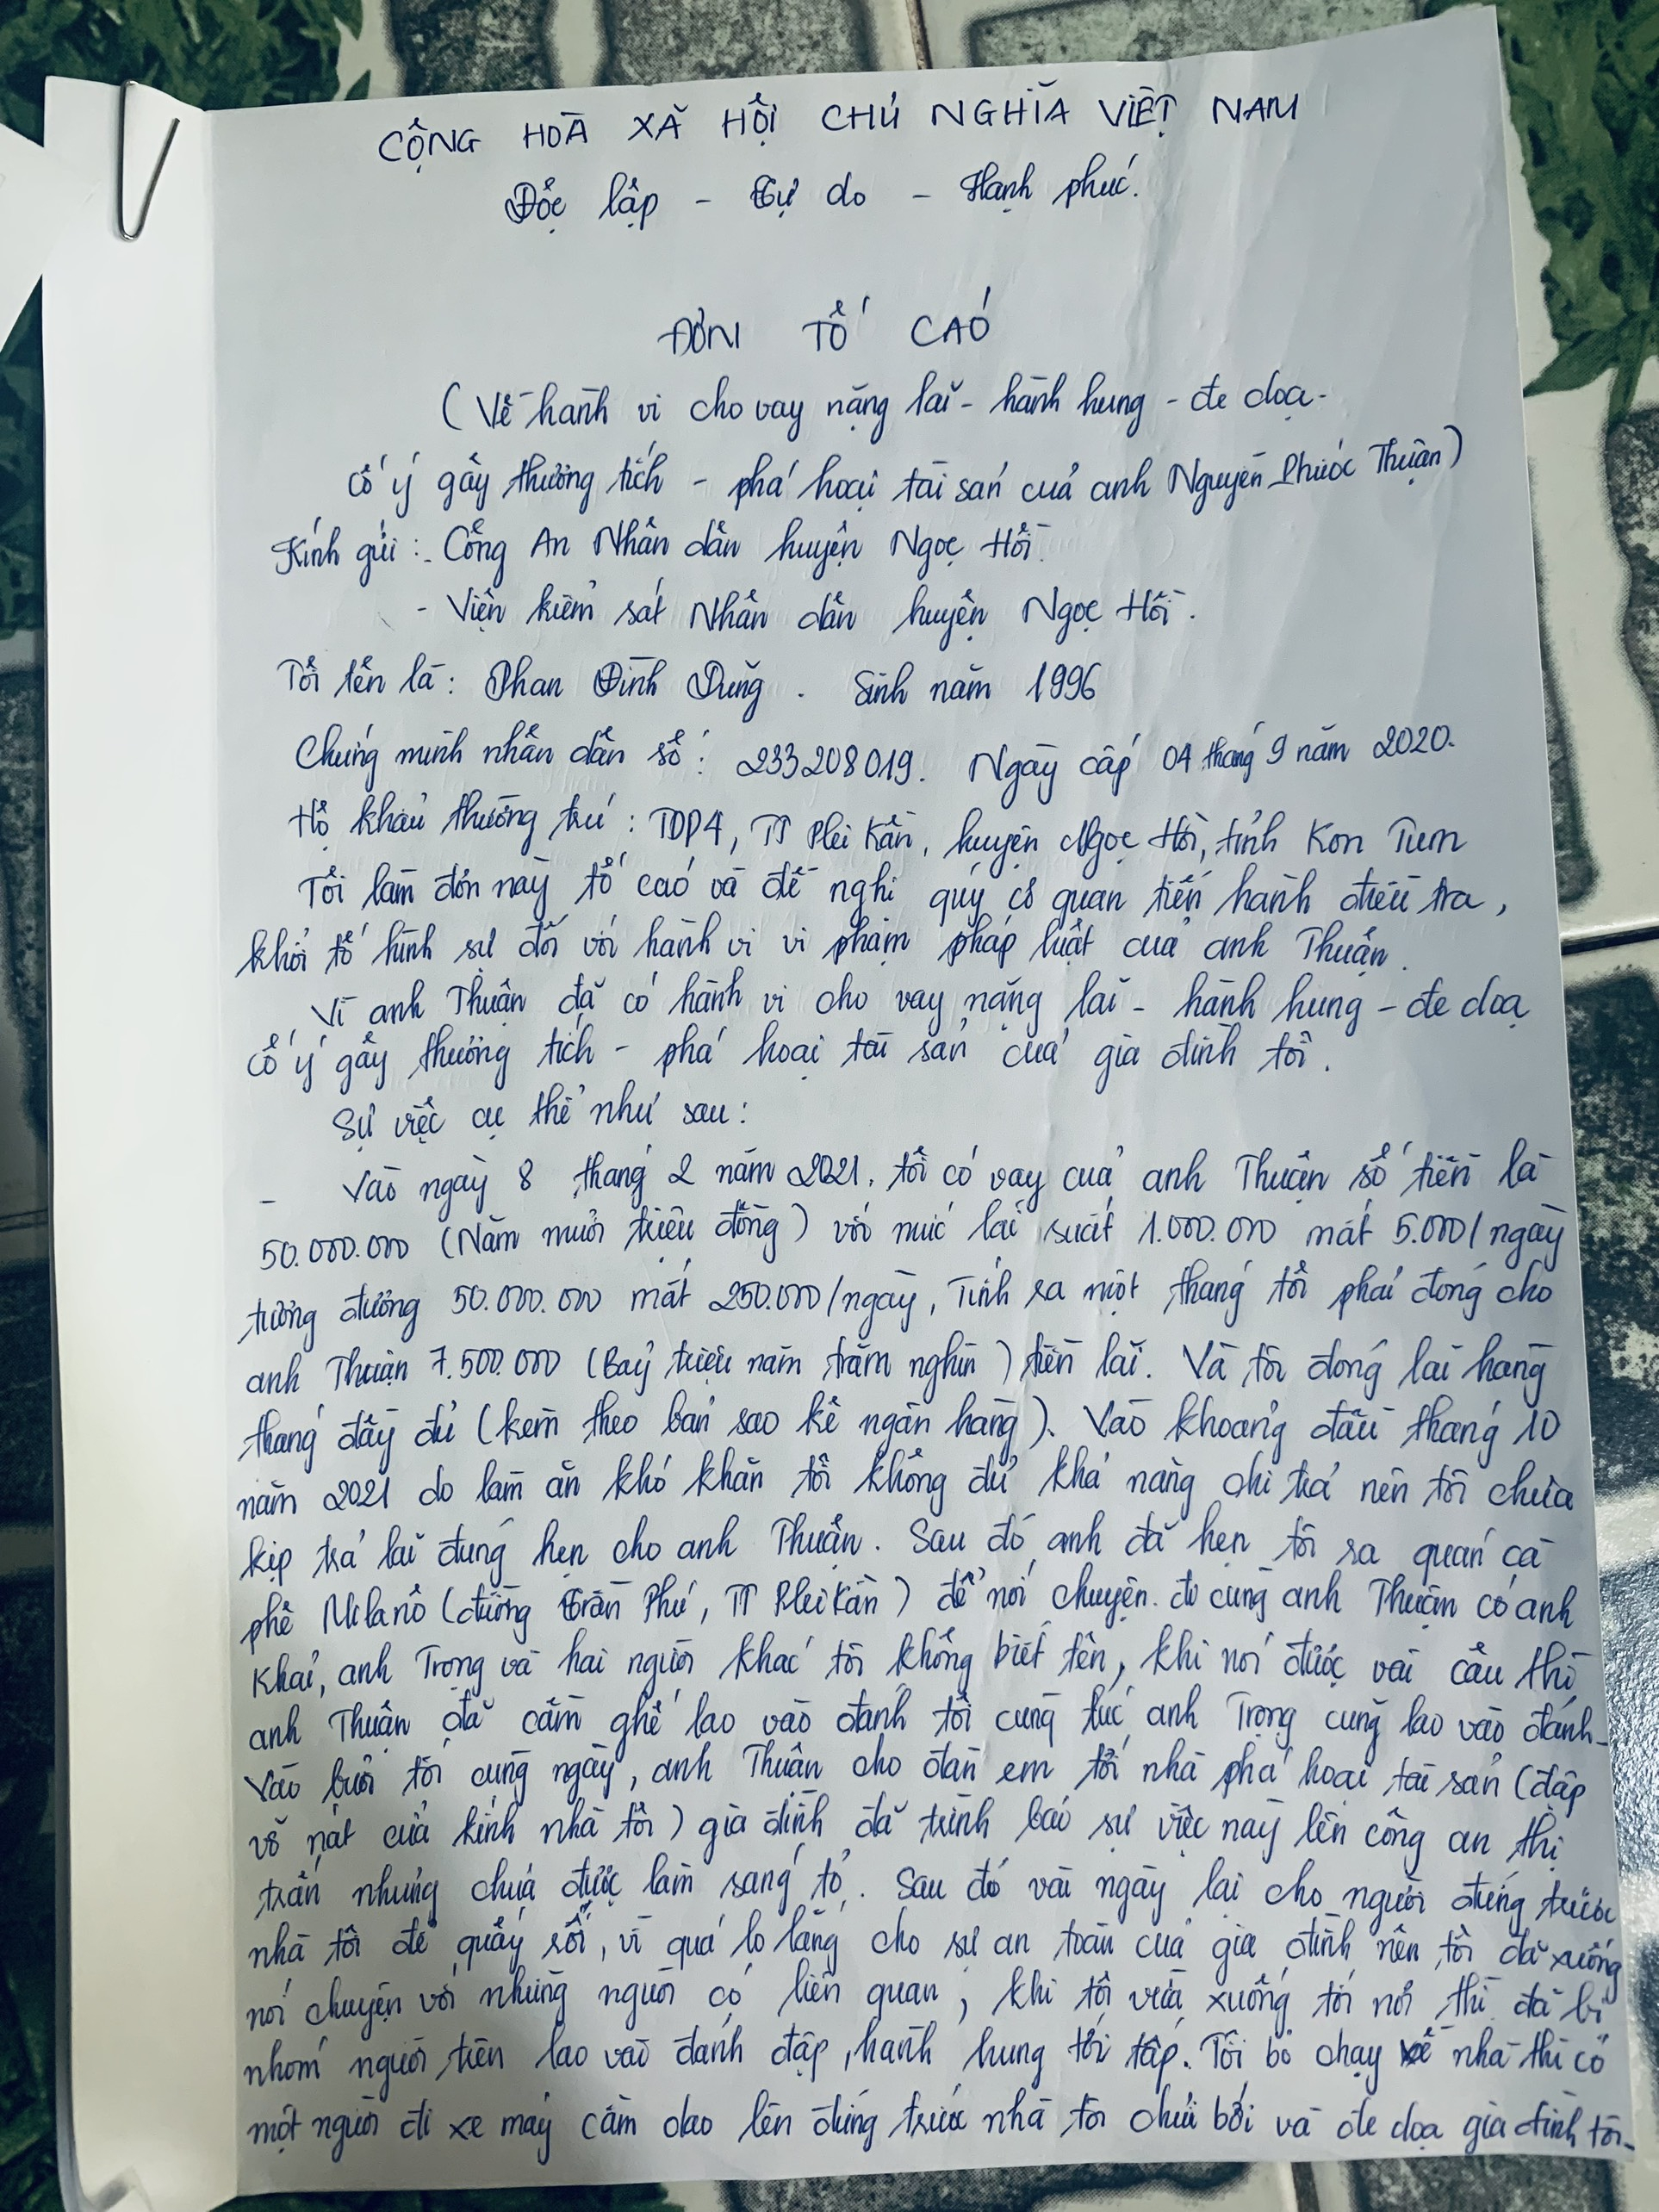 CỘNG HOÀ XÃ HỘI CHỦ NGHĨA VIỆT NAM
Độc lập - Tự do - Hạnh phúc.
ĐƠN TỐ CÁO
(Về hành vi cho vay nặng lãi - hành hung - đe doạ -
cố ý gây thương tích - phá hoại tài sản của anh Nguyễn Phước Thuận)
Kính gửi: - Công An Nhân dân huyện Ngọc Hồi
- Viện kiểm sát Nhân dân huyện Ngọc Hồi.
Tôi tên là: Phan Đình Dũng. Sinh năm 1996
Chứng minh nhân dân số: 233208019. Ngày cấp 04 tháng 9 năm 2020.
Hộ khẩu thường trú: TDP4, TT Plei Kần, huyện Ngọc Hồi, tỉnh Kon Tum
Tôi làm đơn này tố cáo và đề nghị quý cơ quan tiến hành điều tra,
khởi tố hình sự đối với hành vi vi phạm pháp luật của anh Thuận.
Vì anh Thuận đã có hành vi cho vay nặng lãi - hành hung - đe doạ
cố ý gây thương tích - phá hoại tài sản của gia đình tôi.
Sự việc cụ thể như sau:
- Vào ngày 8 tháng 2 năm 2021, tôi có vay của anh Thuận số tiền là
50.000.000 (Năm mươi triệu đồng) với mức lãi suất 1.000.000 mất 5.000/ngày
tương đương 50.000.000 mất 250.000/ngày, Tính ra một tháng tôi phải đóng cho
anh Thuận 7.500.000 (Bảy triệu năm trăm nghìn) tiền lãi. Và tôi đóng lãi hàng
tháng đầy đủ (kèm theo bản sao kê ngân hàng). Vào khoảng đầu tháng 10
năm 2021 do làm ăn khó khăn tôi không đủ khả năng chi trả nên tôi chưa
kịp trả lãi đúng hẹn cho anh Thuận. Sau đó anh đã hẹn tôi ra quán cà
phê Milano (đường Trần Phú, TT Plei Kần) để nói chuyện. đi cùng anh Thuận có anh
Khải, anh Trọng và hai người khác tôi không biết tên, khi nói được vài câu thì
anh Thuận đã cầm ghế lao vào đánh tôi cùng lúc anh Trọng cũng lao vào đánh.
Vào buổi tối cùng ngày, anh Thuận cho đàn em tới nhà phá hoại tài sản (đập
vỡ nát cửa kính nhà tôi) gia đình đã trình báo sự việc này lên công an thị
trấn nhưng chưa được làm sáng tỏ. Sau đó vài ngày lại cho người đứng trước
nhà tôi để quấy rối, vì quá lo lắng cho sự an toàn của gia đình nên tôi đã xuống
nói chuyện với những người có liên quan, khi tôi vừa xuống tới nơi thì đã bị
nhóm người trên lao vào đánh đập, hành hung tới tấp. Tôi bỏ chạy về nhà thì có
một người đi xe máy cầm dao lên đứng trước nhà tôi chửi bới và đe doạ gia đình tôi.